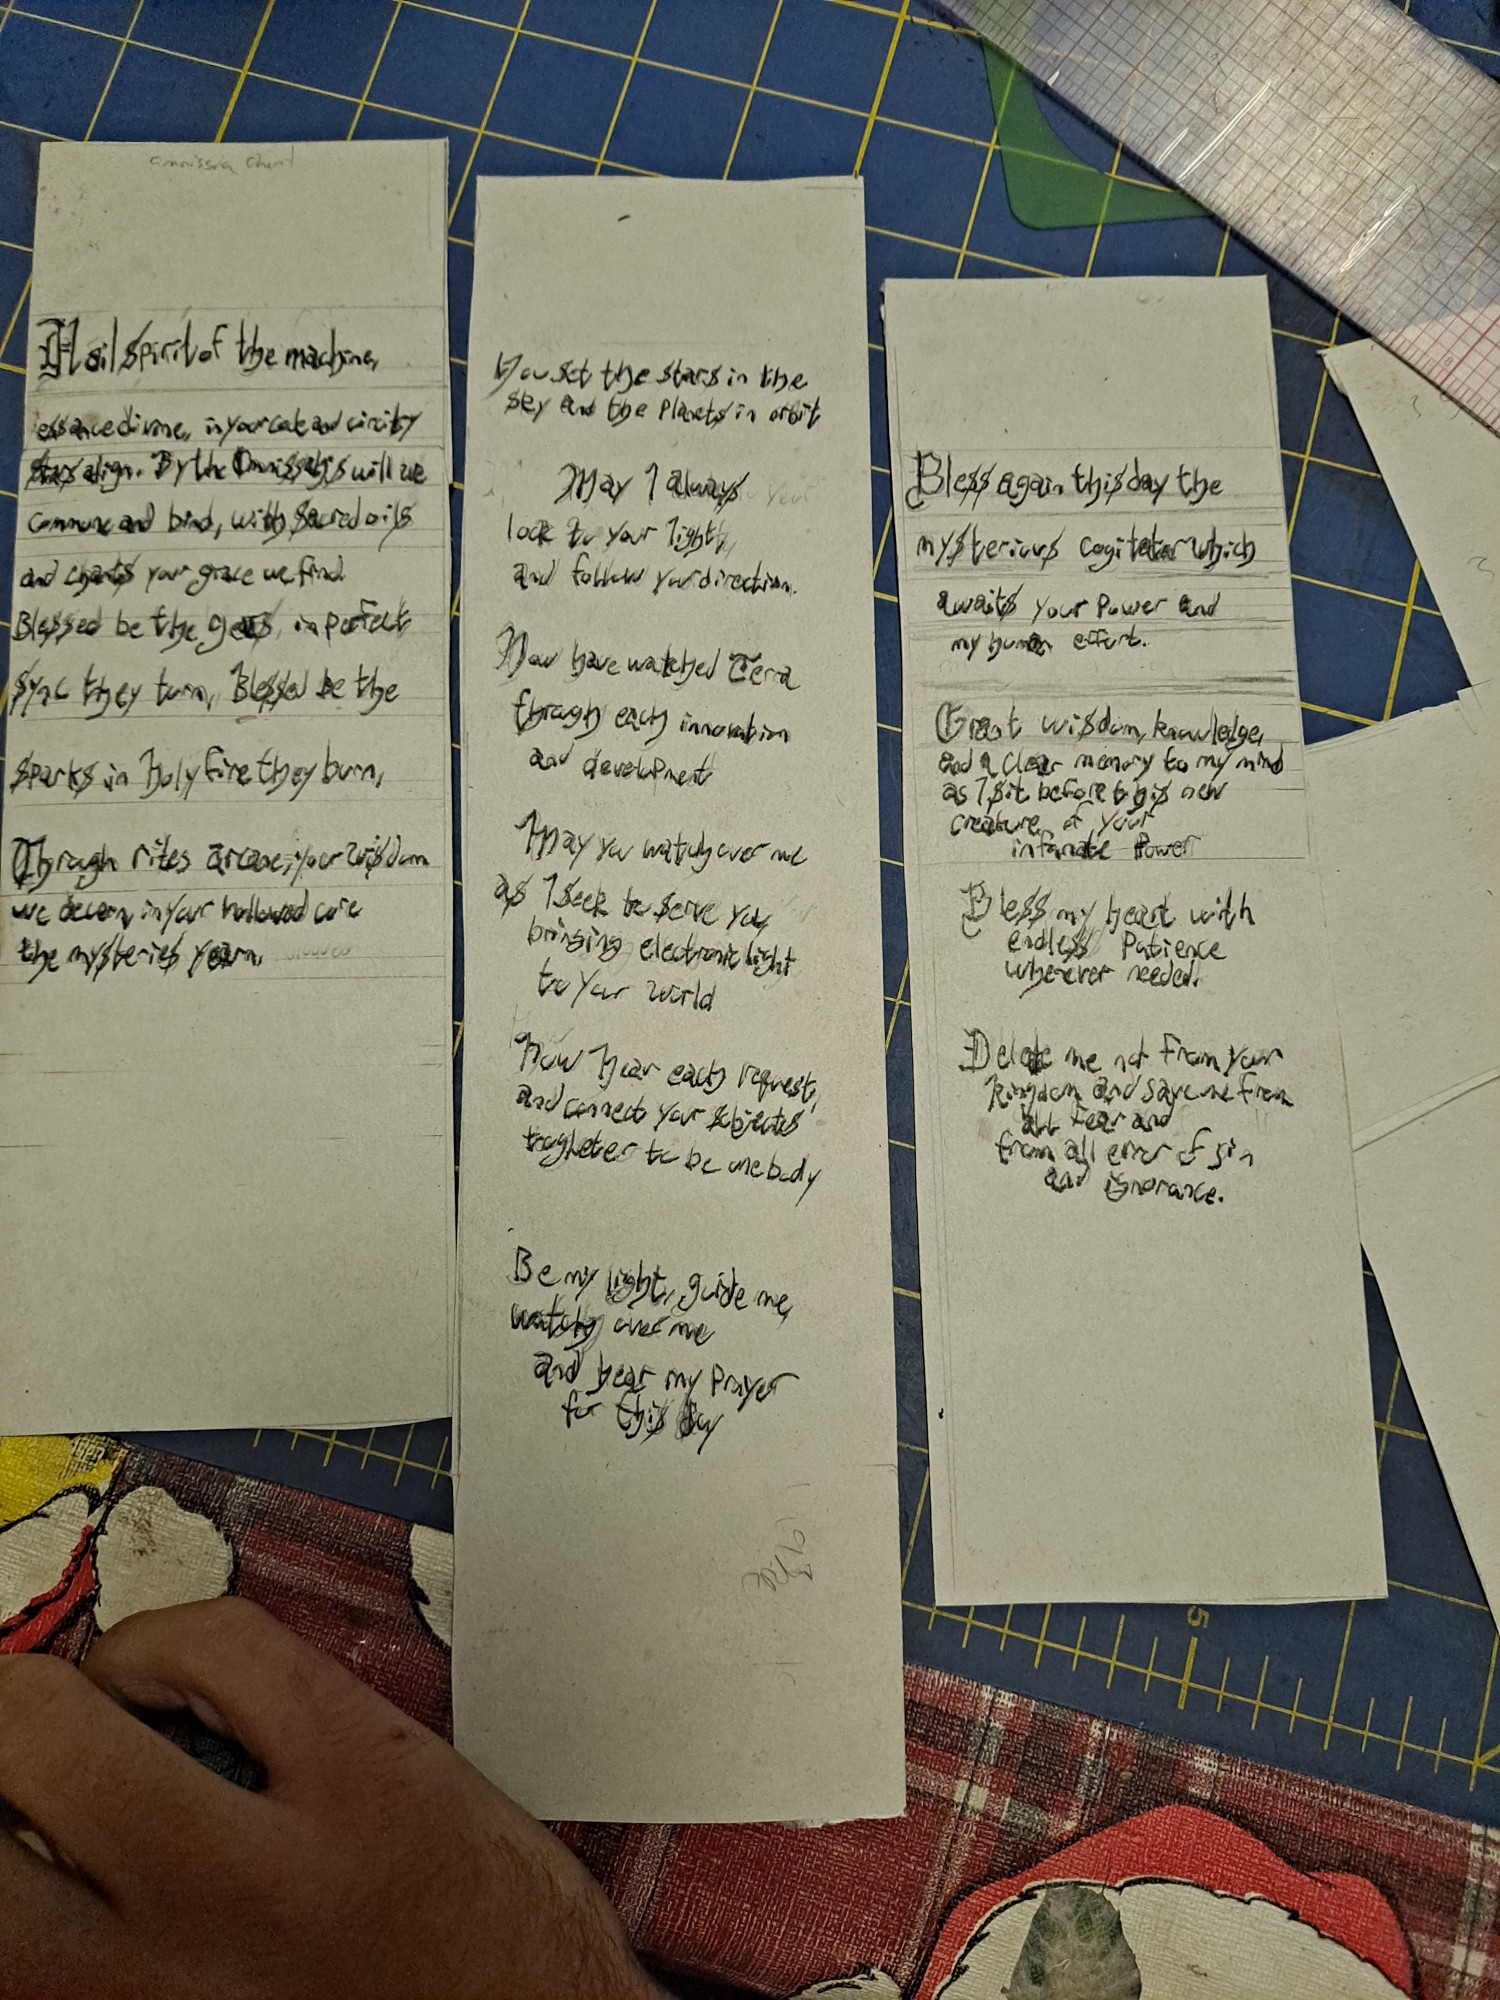 Omnissia Chant
Hail spirit of the machine,
essance divine, in your code and circity
stars align. By the Omnissiah's will we
commune and bind, with sacred oils
and chants your grace we find
Blessed be the gears, in perfect
sync they turn, Blessed be the
sparks in holy fire they burn,
Through rites arcane, your wisdom
we decern, in your hallowed core
the mysteries yearn.
You set the stars in the
sky and the Planets in orbit
May I always
look to your light,
and follow your direction.
have watched Terra
through each innovation
and development
May you watch over me
as I seek to serve you,
bringing electronic light
to your world
Now hear each request,
and connect your subjects
togheter to be one body
Be my light, guide me,
watch over me
and hear my Prayer
for this day
Bless again this day the
mysterious cogitator which
awaits your Power and
my human effort.
Great wisdom, knowledge,
and a clear memory to my mind
as I sit before this new
creature of your
infanate Power
Bless my heart with
endless Patience
wherever needed.
Delete me not from your
kingdom and save me from
all fear and
from all error of sin
and ignorance.
5